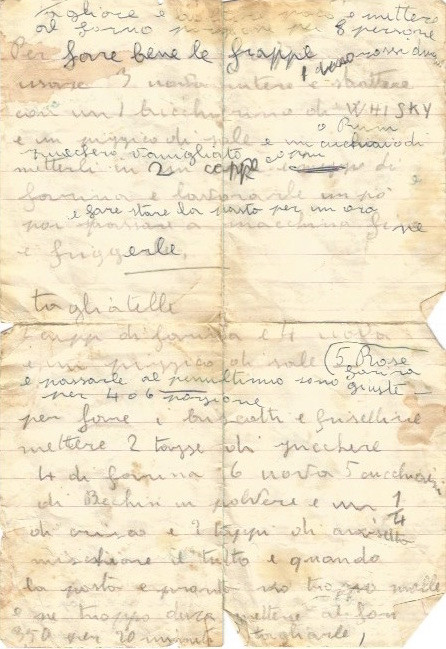 tagliare e mettere
al forno 8 persone
Per fare bene le frappe
usare 3 uova intere e sbattere
con un 1 bicchierino di WHISKY
o Rum
e un pizzico di sale e un cucchiaio di
zucchero vanigliato
metterli in 2 coppe di
farina e lavorarle un po
e fare stare la pasta per un ora
poi passare a macchina fine
e friggerle.
tagliatelle
di farina e 4 uova
e un pizzico di sale
5 Rose
e passarle al penultimo sono giuste
per 4 o 6 porzione
per fare i biscotti e
mettere 2 tazze di zucchere
4 di farina 6 uova 5 cucchiai
di Bechin in polvere e un 1/4
di crisco e 2 tappi di
mischiare il tutto e quando
la pasta e pronta no troppo molle
e ne troppo dura mettere al forn
350 per 20 minuti tagliarle